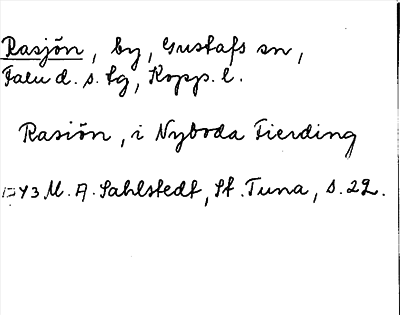 Rasjön, by, Gustafs sn,
Falu d. s. tg, Kopp. l.
Rasiön, i Nyboda Fierding
1743 M. A. Sahlstedt, St. Tuna, s. 22.